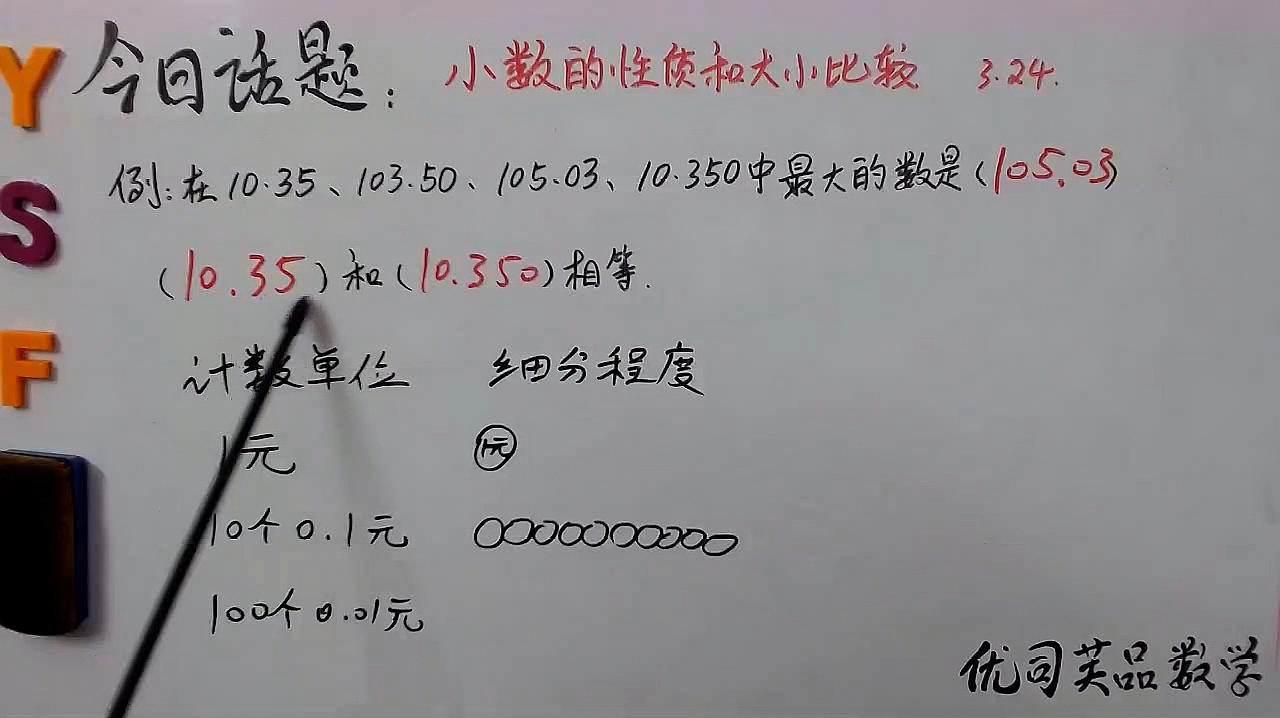 今日话题：小数的性质和大小比较 3.24.
例：在10.35、103.50、105.03、10.350中最大的数是（105.03）
（10.35）和（10.350）相等.
计数单位 细分程度
1元 1元
10个0.1元
100个0.01元
优司芙品数学
Y
S
F